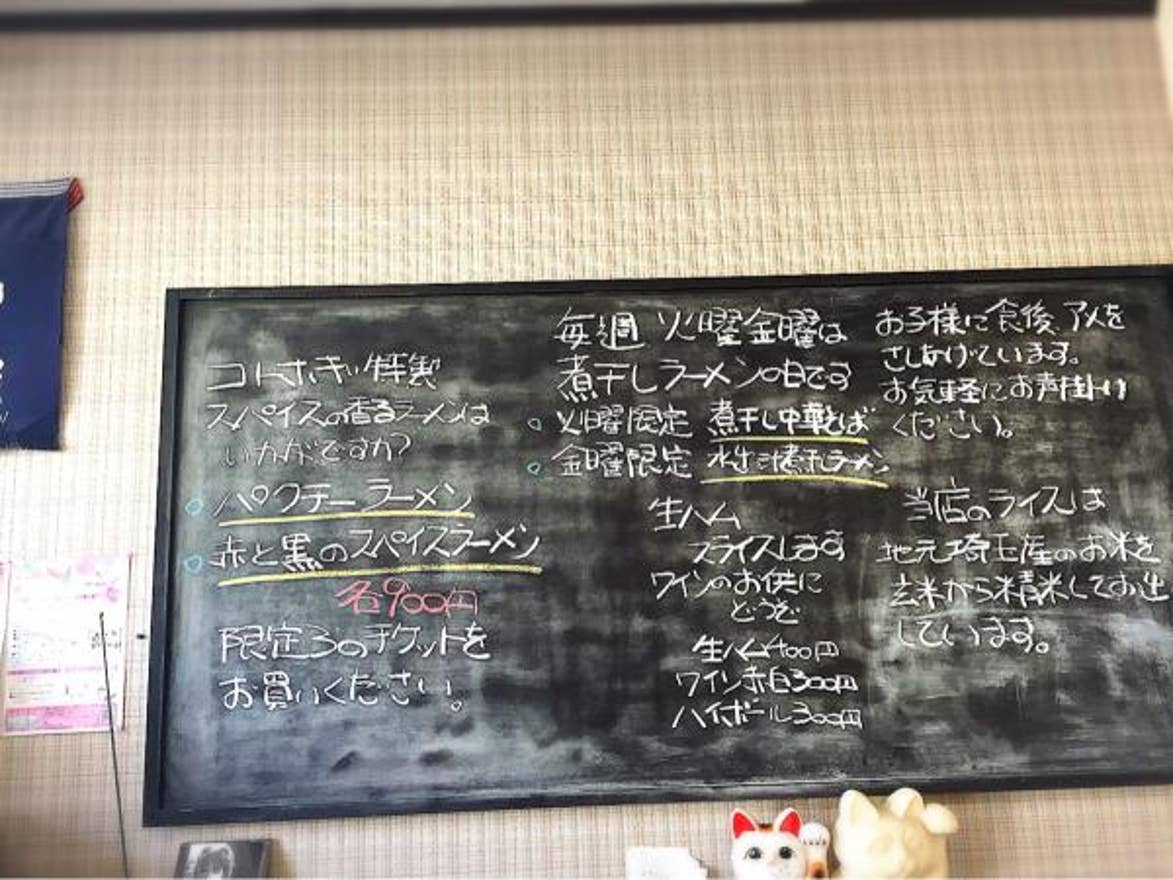 特製
スパイスの香るラーメンは
いかがですか?
パクチーラーメン
赤と黒のスパイスラーメン
各900円
限定3のチケットを
お買いください。
毎週 火曜金曜は
煮干しラーメンの日です
火曜限定 煮干し中華そば
金曜限定 煮干しラーメン
生ハム
スライスします
ワインのお供に
どうぞ
生ハム400円
ワイン赤白300円
ハイボール300円
お子様に食後、アメを
さしあげています。
お気軽にお声掛け
ください。
当店のライスは
地元埼玉産のお米を
玄米から精米してお出
しています。